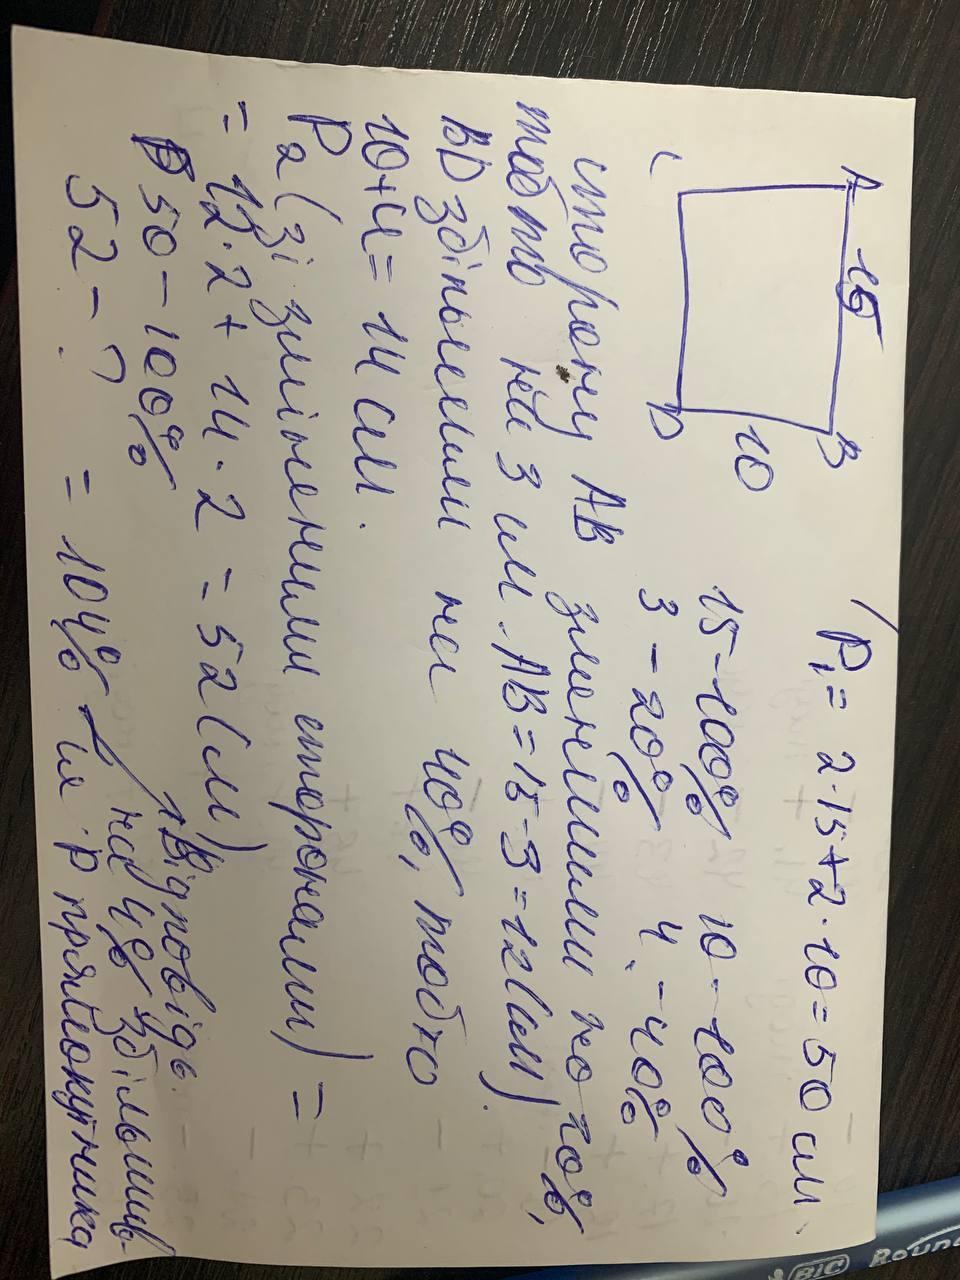 A 15 B
10
C D
P₁ = 2·15+2·10=50 см.
15-100% 10-100%
3-20% 4-40%
сторону AB зменшими на 20%,
тобто на 3 см. AB=15-3=12(см).
BD збільшими на 40%, тобто
10+4=14 см.
P₂ (зі зміненими сторонами) =
= 12·2+14·2=52(см)
50-100%
52-? = 104%
Відповідь:
на 4% збільшив-
ся P прямокутника
BIC Roun